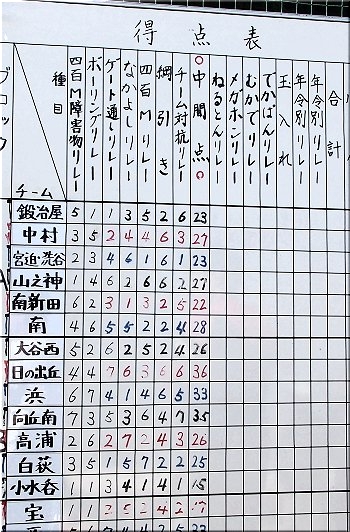 得点表
ブロック
種目
チーム
四百M障害物リレー
ボーリングリレー
ゲート通しリレー
なかよしリレー
四百Mリレー
綱引き
チーム対抗リレー
○中間点○
ねるとんリレー
メガホンリレー
むかでリレー
でかぱんリレー
玉入れ
年令別リレー
年令別リレー
合計
鍛冶屋 5 1 1 3 5 2 6 23
中村 3 5 2 4 4 6 3 27
宮迫・洗谷 2 3 4 6 1 6 1 23
山之神 1 4 6 2 6 6 2 27
南新田 6 2 3 1 3 2 5 22
南 4 6 5 5 2 2 4 28
大谷西 5 2 6 2 5 2 4 26
日の出丘 4 4 7 6 3 6 6 36
浜 6 7 4 1 4 6 5 33
向丘南 7 3 5 3 6 4 7 35
高浦 2 6 2 7 2 4 3 26
白萩 3 5 1 5 7 2 2 25
小水呑 1 1 3 4 1 4 1 15
宝 1 1 3 5 2 4 2